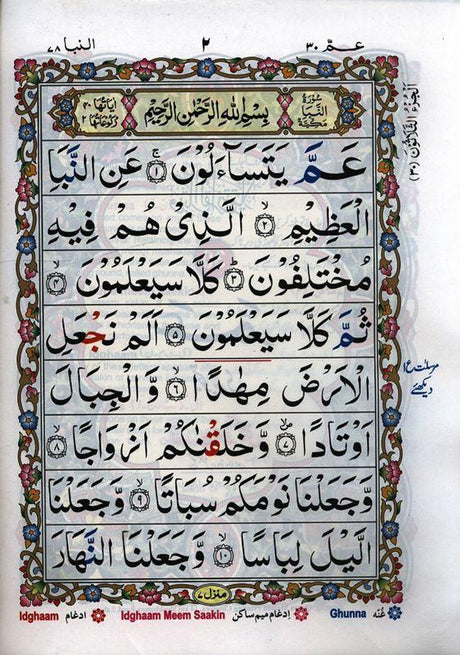 عم ٣٠ ٢ النبا ٧٨
سورة النبا مكية بسم الله الرحمن الرحيم اياتها ٤٠ ركوعاتها ٢
الجزء الثلاثون (٣٠)
عَمَّ يَتَسَآءَلُوْنَ ۚ ١ عَنِ النَّبَاِ
الْعَظِيْمِ ٢ الَّذِيْ هُمْ فِيْهِ
مُخْتَلِفُوْنَ ٣ كَلَّا سَيَعْلَمُوْنَ ٤
ثُمَّ كَلَّا سَيَعْلَمُوْنَ ٥ اَلَمْ نَجْعَلِ
الْاَرْضَ مِهٰدًا ٦ وَّالْجِبَالَ
اَوْتَادًا ٧ وَّخَلَقْنٰكُمْ اَزْوَاجًا ٨
وَّجَعَلْنَا نَوْمَكُمْ سُبَاتًا ٩ وَّجَعَلْنَا
الَّيْلَ لِبَاسًا ١٠ وَّجَعَلْنَا النَّهَارَ
منزل ٧
Idghaam ادغام Idghaam Meem Saakin إدغام ميم ساكن Ghunna غُنّه